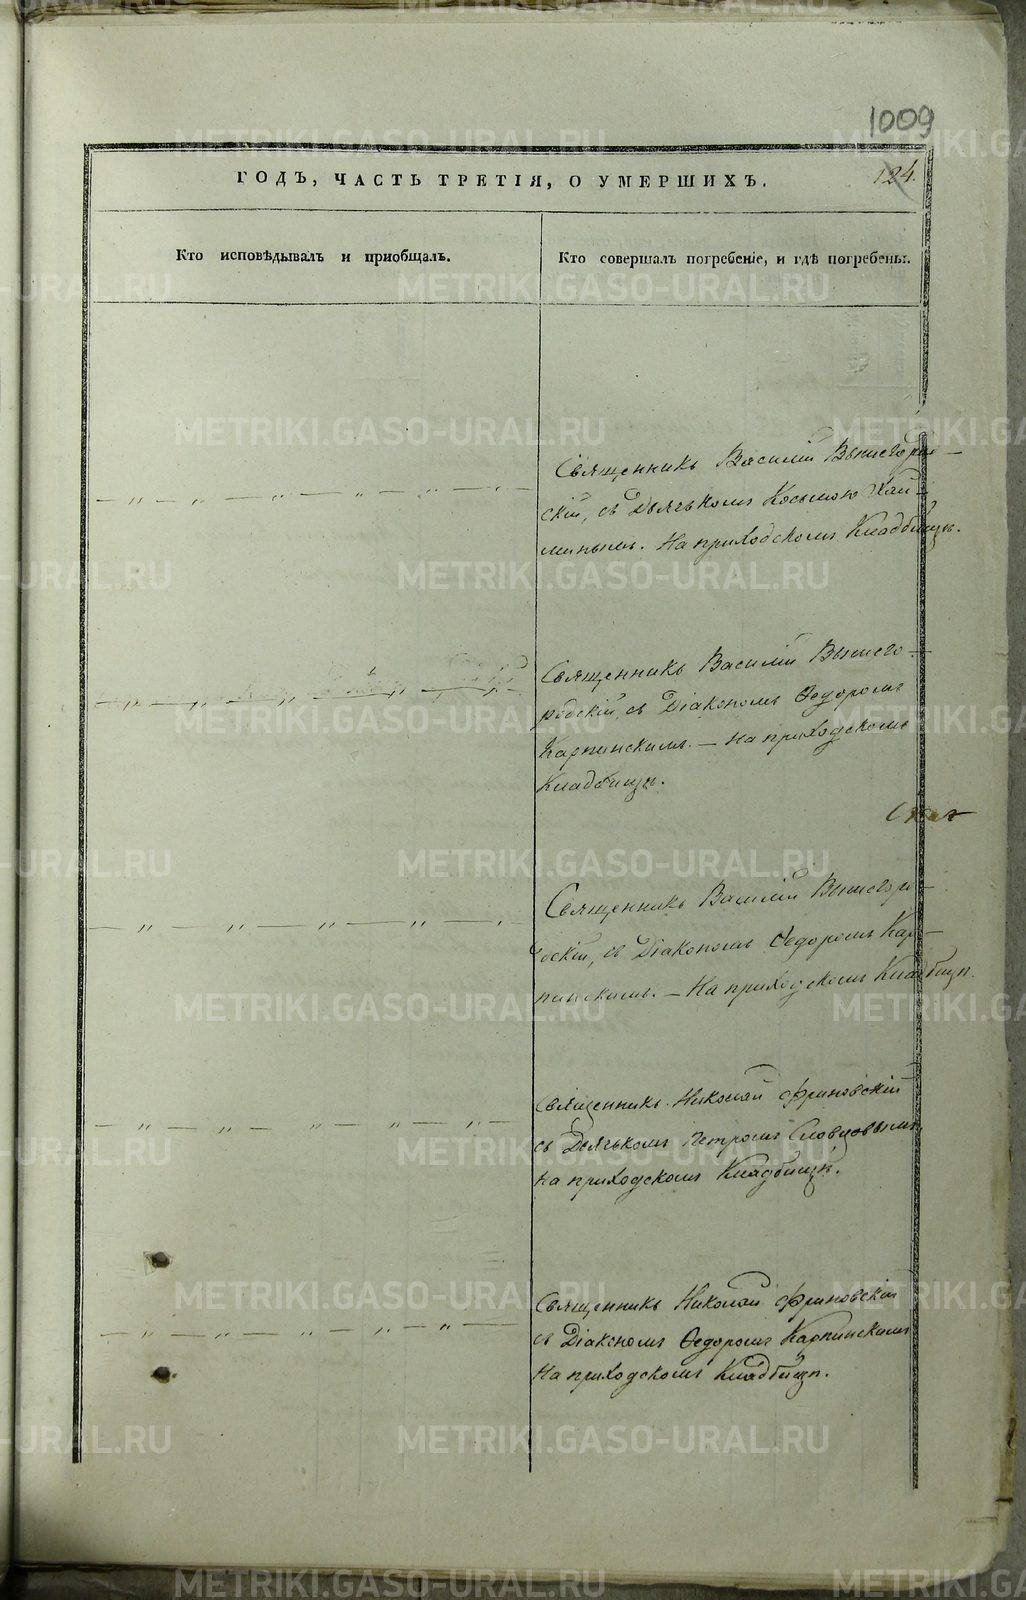 1009
124.
ГОДЪ, ЧАСТЬ ТРЕТІЯ, О УМЕРШИХЪ.
Кто исповѣдывалъ и приобщалъ.
Кто совершалъ погребеніе, и гдѣ погребены.
Священникъ Василій Вышегород-
скій, съ Дьячькомъ Косьмою
На приходскомъ Кладбищѣ.
Священникъ Василій Вышего-
родскій, съ Діакономъ Ѳедоромъ
Карпинскимъ. — На приходскомъ
Кладбищѣ.
Священникъ Василій Вышегоро-
дскій, съ Діакономъ Ѳедоромъ Кар-
пинскимъ. — На приходскомъ Кладбищѣ.
Священникъ Николай Фриновскій
съ Дьячькомъ Петромъ Словцовымъ,
на приходскомъ Кладбищѣ.
Священникъ Николай Фриновскій
съ Діакономъ Ѳедоромъ Карпинскимъ
на приходскомъ Кладбищѣ.
METRIKI.GASO-URAL.RU